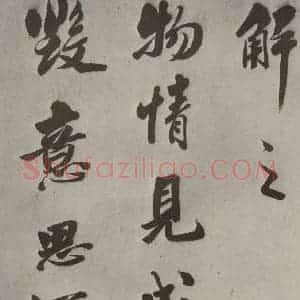 解之
物情見
毀意思
Shufaziliao.COM